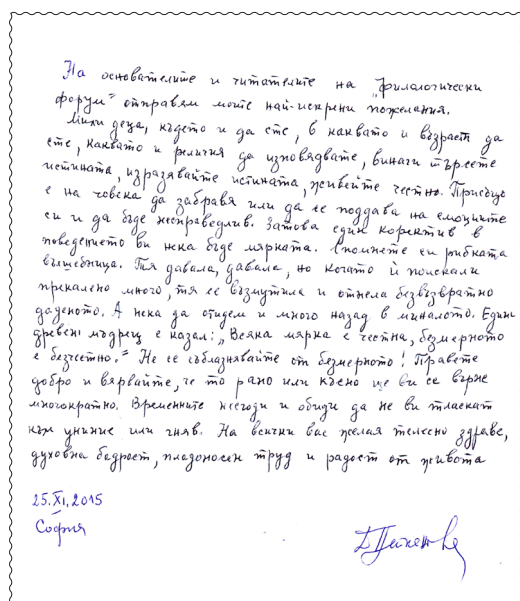 На основателите и читателите на „Филологически
форум“ отправям моите най-искрени пожелания.
Мили деца, където и да сте, в каквато и възраст да
сте, каквато и религия да изповядвате, винаги търсете
истината, изразявайте истината, живейте честно. Присъщо
е на човека да забравя или да се поддава на емоциите
си и да бъде несправедлив. Затова един коректив в
поведението ви нека бъде мярката. Спомнете си рибката
вълшебница. Тя давала, давала, но когато ѝ поискали
прекалено много, тя се възмутила и отнела безвъзвратно
даденото. А нека да отидем и много назад в миналото. Един
древен мъдрец е казал: „Всяка мярка е честна, безмерното
е безчестно.“ Не се съблазнявайте от безмерното! Правете
добро и вярвайте, че то рано или късно ще ви се върне
многократно. Временните несгоди и обиди да не ви тласкат
към униние или гняв. На всички вас желая телесно здраве,
духовна бодрост, плодоносен труд и радост от живота
25.XI.2015
София